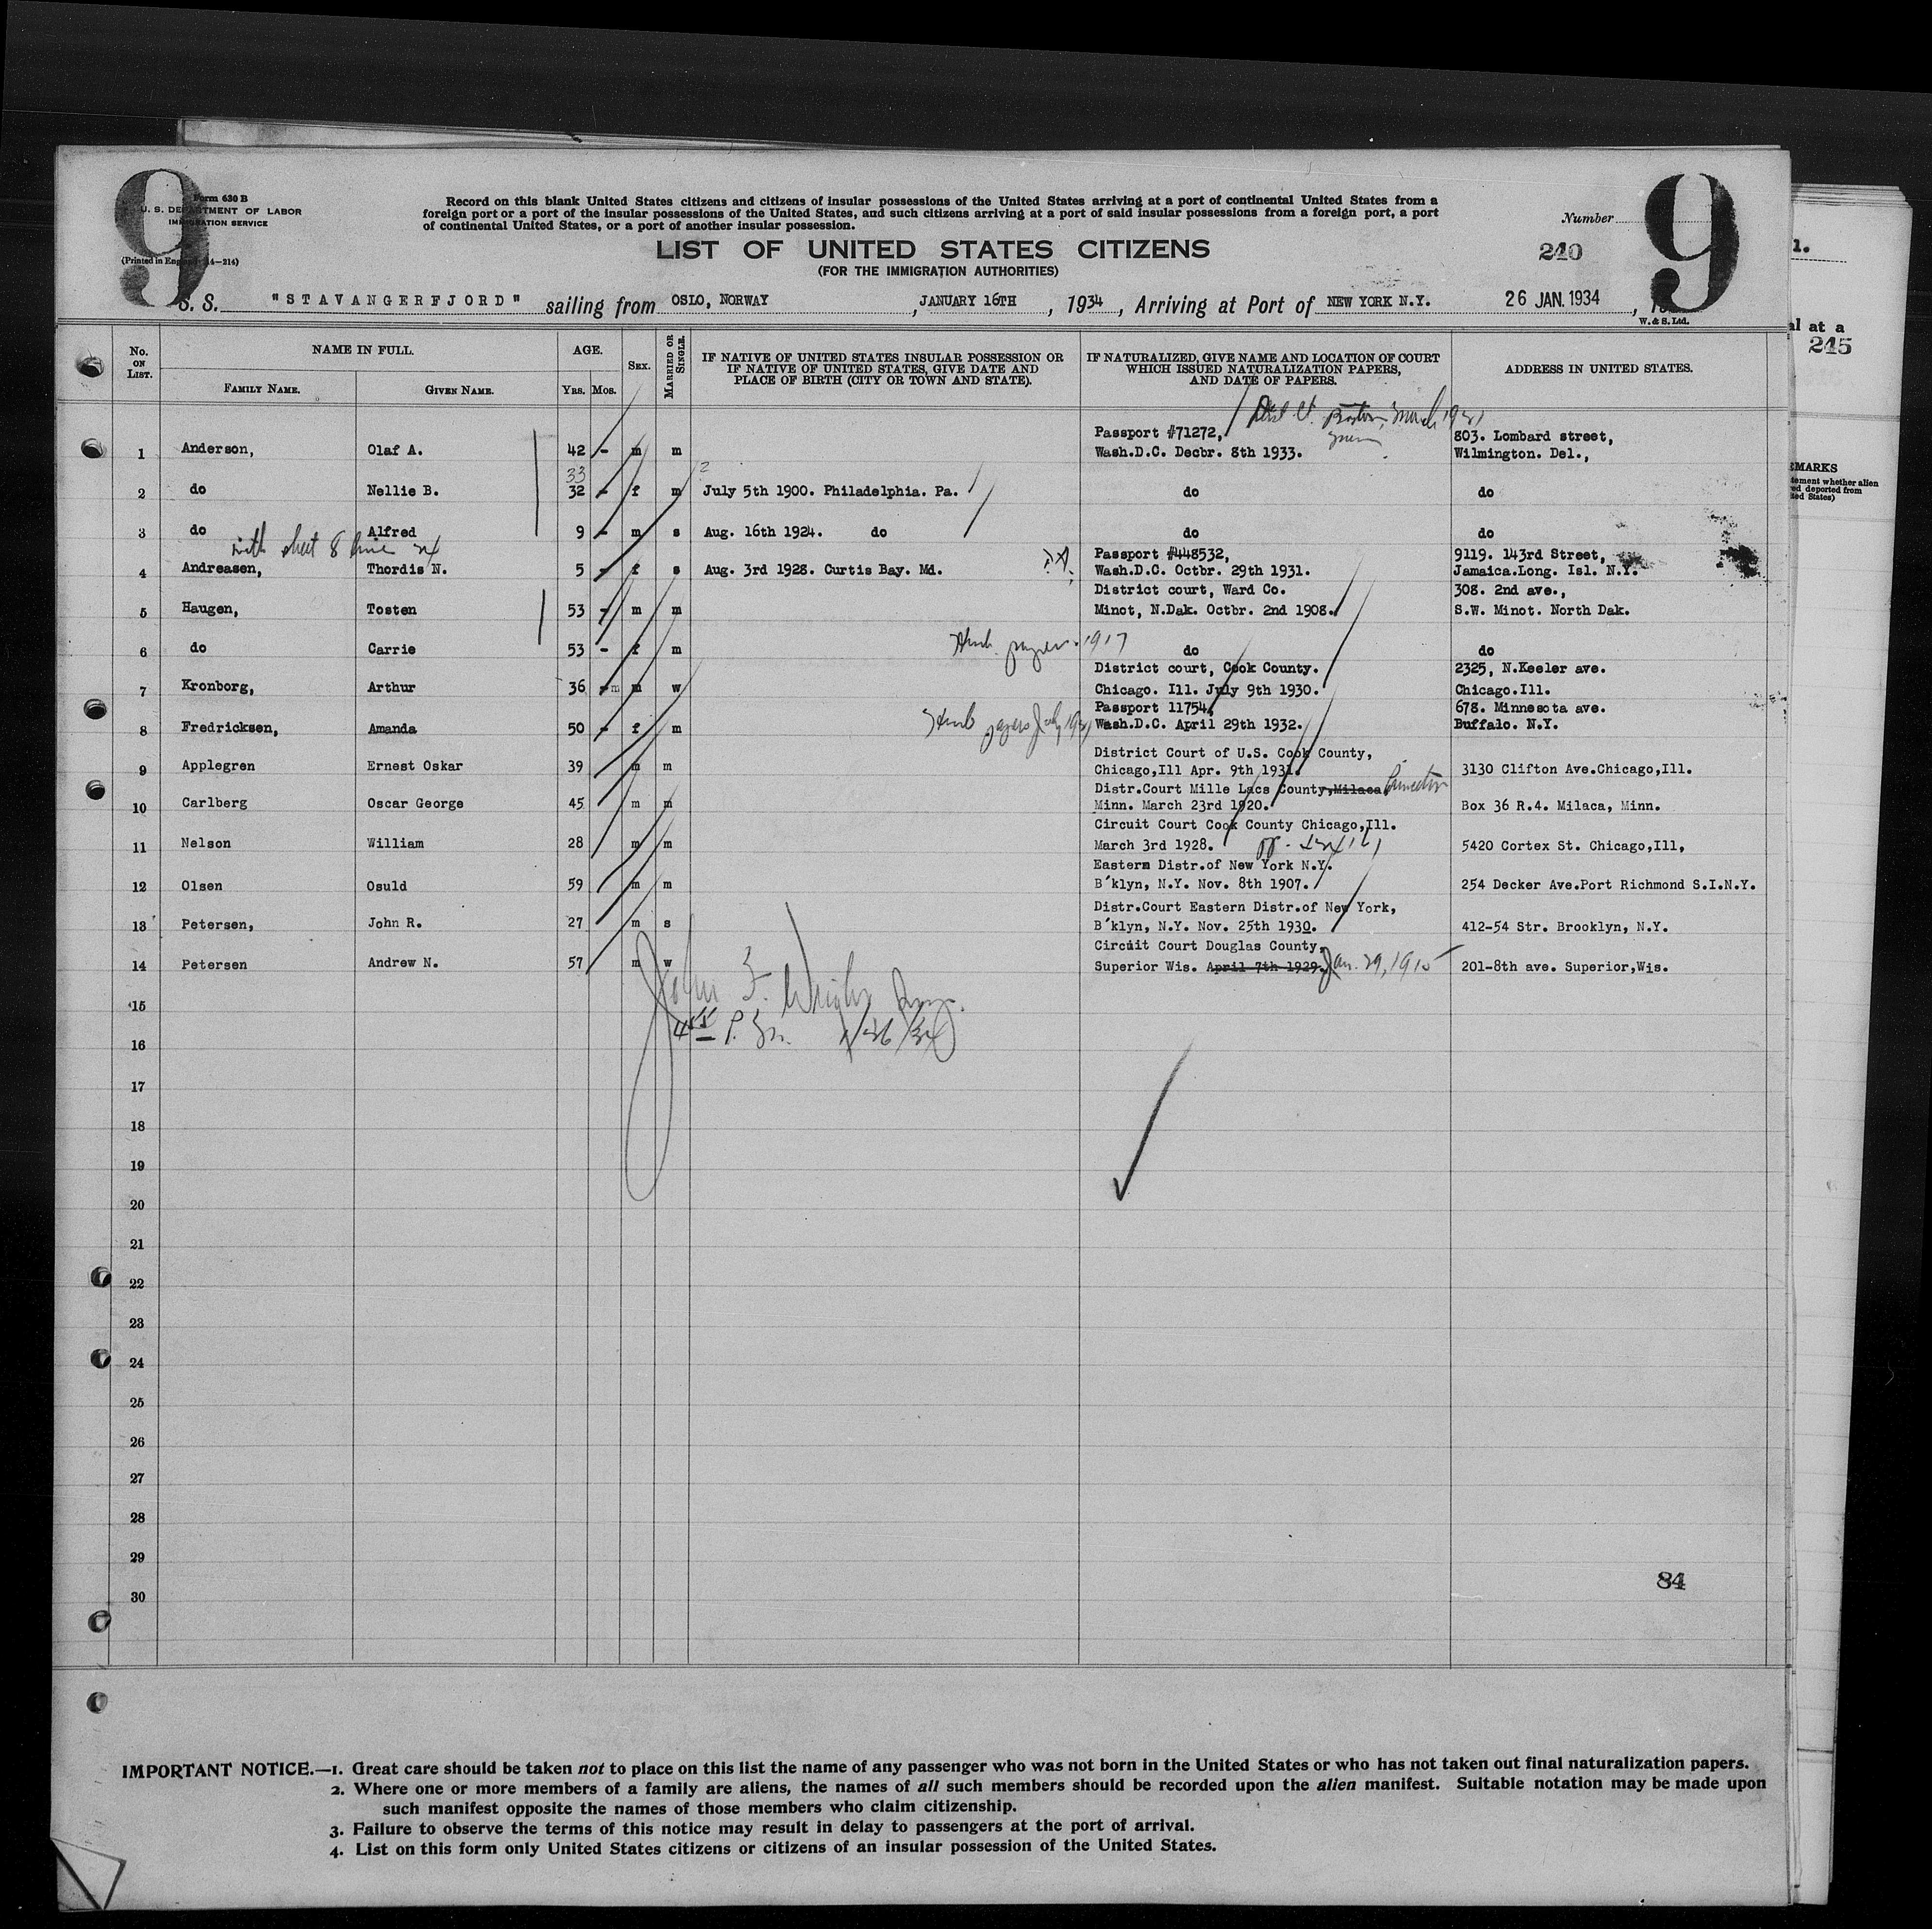 9
9
Form 630 B
U. S. DEPARTMENT OF LABOR
IMMIGRATION SERVICE
(Printed in England 14—214)
Record on this blank United States citizens and citizens of insular possessions of the United States arriving at a port of continental United States from a
foreign port or a port of the insular possessions of the United States, and such citizens arriving at a port of said insular possessions from a foreign port, a port
of continental United States, or a port of another insular possession.
Number
LIST OF UNITED STATES CITIZENS
240
(FOR THE IMMIGRATION AUTHORITIES)
S. S. "STAVANGERFJORD" sailing from OSLO, NORWAY, JANUARY 16TH, 1934, Arriving at Port of NEW YORK N.Y. 26 JAN. 1934
W. & S. Ltd.
No. ON LIST. NAME IN FULL. AGE. SEX. MARRIED OR SINGLE. IF NATIVE OF UNITED STATES INSULAR POSSESSION OR IF NATIVE OF UNITED STATES, GIVE DATE AND PLACE OF BIRTH (CITY OR TOWN AND STATE). IF NATURALIZED, GIVE NAME AND LOCATION OF COURT WHICH ISSUED NATURALIZATION PAPERS, AND DATE OF PAPERS. ADDRESS IN UNITED STATES.
FAMILY NAME. GIVEN NAME. YRS. MOS.
Boston, March 1921
Passport #71272, 803. Lombard street,
1 Anderson, Olaf A. 42 - m m Wash.D.C. Decbr. 8th 1933. Wilmington. Del.,
33
2 do Nellie B. 32 - f m July 5th 1900. Philadelphia. Pa. do do
3 do Alfred 9 - m s Aug. 16th 1924. do do do
with sheet 8 line 24
Passport #448532, 9119. 143rd Street,
4 Andreasen, Thordis N. 5 - f s Aug. 3rd 1928. Curtis Bay. Md. Wash.D.C. Octbr. 29th 1931. Jamaica.Long. Isl. N.Y.
District court, Ward Co. 308. 2nd ave.,
5 Haugen, Tosten 53 - m m Minot, N.Dak. Octbr. 2nd 1908. S.W. Minot. North Dak.
Husb. papers. 1917
6 do Carrie 53 - f m do do
District court, Cook County. 2325, N.Keeler ave.
7 Kronborg, Arthur 36 - m m w Chicago. Ill. July 9th 1930. Chicago.Ill.
Passport 11754, 678. Minnesota ave.
8 Fredricksen, Amanda 50 - f m Husb papers July 1931 Wash.D.C. April 29th 1932. Buffalo. N.Y.
District Court of U.S. Cook County,
9 Applegren Ernest Oskar 39 m m Chicago,Ill Apr. 9th 1931. 3130 Clifton Ave.Chicago,Ill.
Distr.Court Mille Lacs County,Milaca Princeton
10 Carlberg Oscar George 45 m m Minn. March 23rd 1920. Box 36 R.4. Milaca, Minn.
Circuit Court Cook County Chicago,Ill.
11 Nelson William 28 m m March 3rd 1928. 5420 Cortex St. Chicago,Ill,
Eastern Distr.of New York N.Y.
12 Olsen Osuld 59 m m B'klyn, N.Y. Nov. 8th 1907. 254 Decker Ave.Port Richmond S.I.N.Y.
Distr.Court Eastern Distr.of New York,
13 Petersen, John R. 27 m s B'klyn, N.Y. Nov. 25th 1930. 412-54 Str. Brooklyn, N.Y.
Circuit Court Douglas County,
14 Petersen Andrew N. 57 m w Superior Wis. April 7th 1929. Jan. 29, 1915 201-8th ave. Superior,Wis.
John F.
15
1/26/34
16
17
18
19
20
21
22
23
24
25
26
27
28
29
84
30
IMPORTANT NOTICE.—1. Great care should be taken not to place on this list the name of any passenger who was not born in the United States or who has not taken out final naturalization papers.
2. Where one or more members of a family are aliens, the names of all such members should be recorded upon the alien manifest. Suitable notation may be made upon
such manifest opposite the names of those members who claim citizenship.
3. Failure to observe the terms of this notice may result in delay to passengers at the port of arrival.
4. List on this form only United States citizens or citizens of an insular possession of the United States.
1.
al at a
245
EMARKS